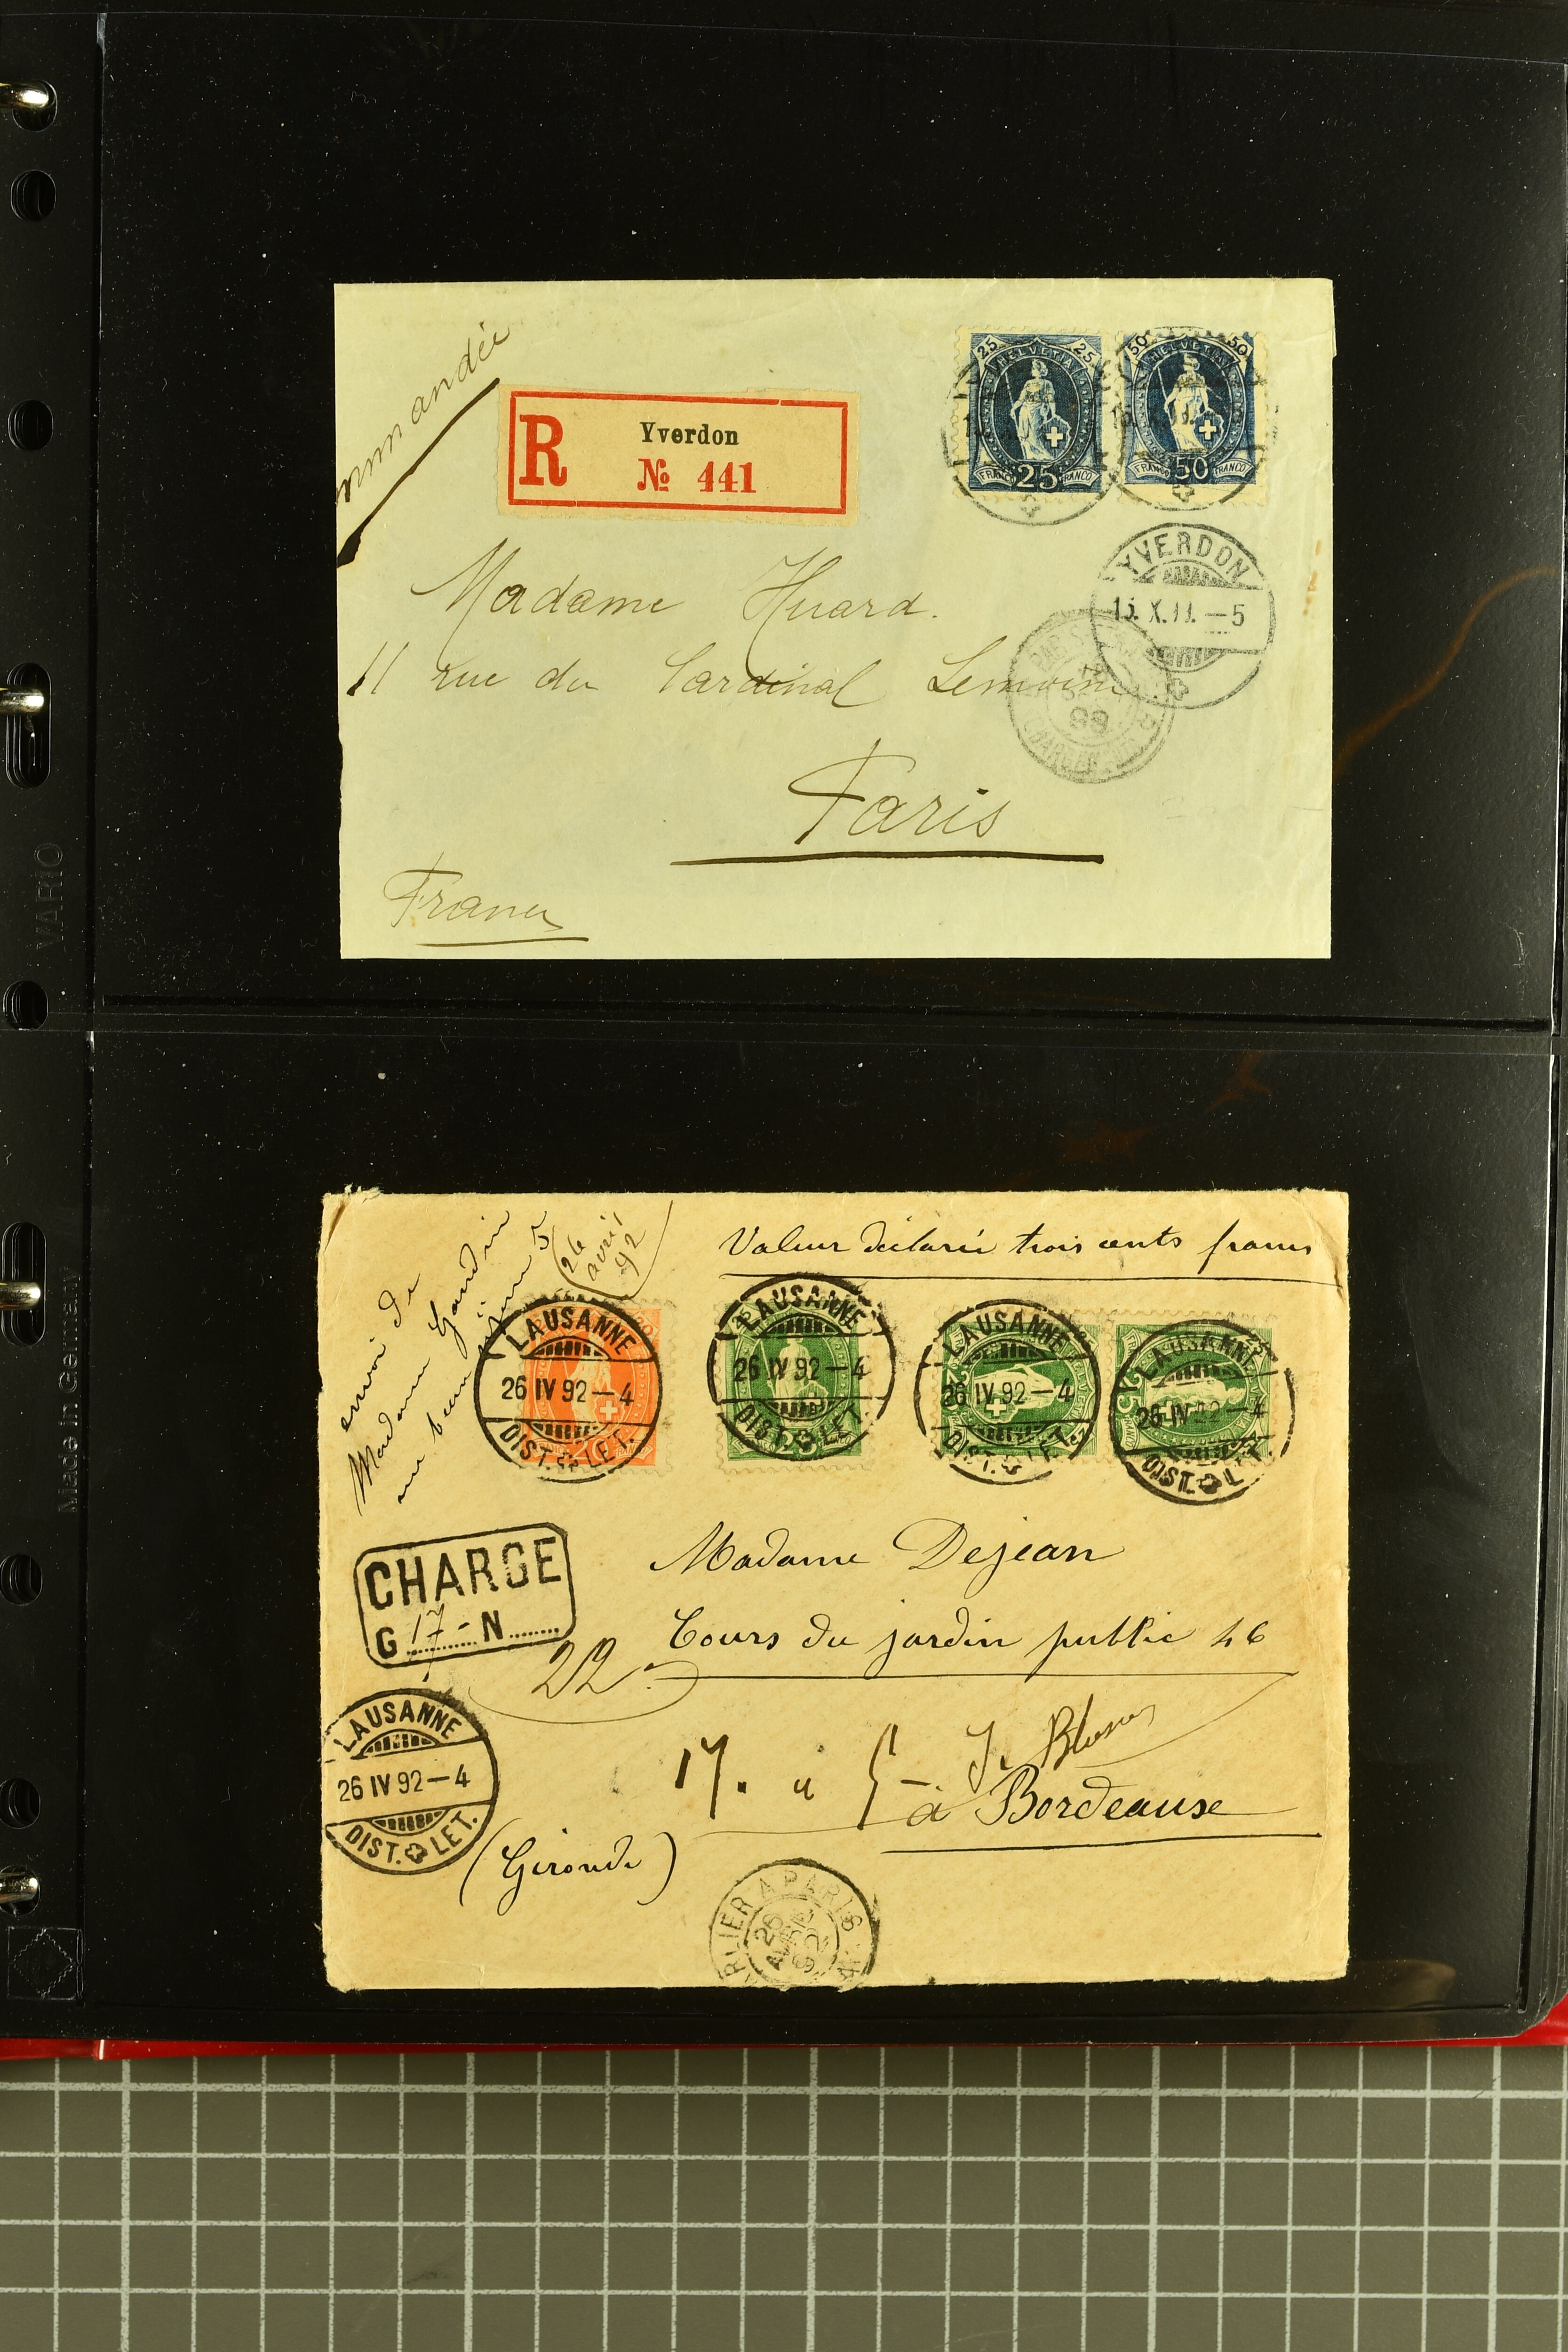 25 25
HELVETIA
FRANCO 25 FRANCO
50 50
HELVETIA
FRANCO 50 FRANCO
R Yverdon
№ 441
YVERDON
X. —5
Madame Huard.
11 rue du Cardinal Lemoine
99
Paris
France
VARIO
Made in Germany
Valeur déclarée trois cents francs
26
avril
92
envoi de
Madame
LAUSANNE
26 IV 92—4
DIST. LET.
LAUSANNE
26 IV 92—4
DIST. LET.
LAUSANNE
26 IV 92—4
DIST. LET.
LAUSANNE
26 IV 92—4
DIST. LET.
CHARGE
G 17 - N
22
Madame Dejean
Cours du jardin public 46
17. à 5
à Bordeaux
LAUSANNE
26 IV 92—4
DIST. LET.
(Gironde)
RLIER A PARIS
26
92